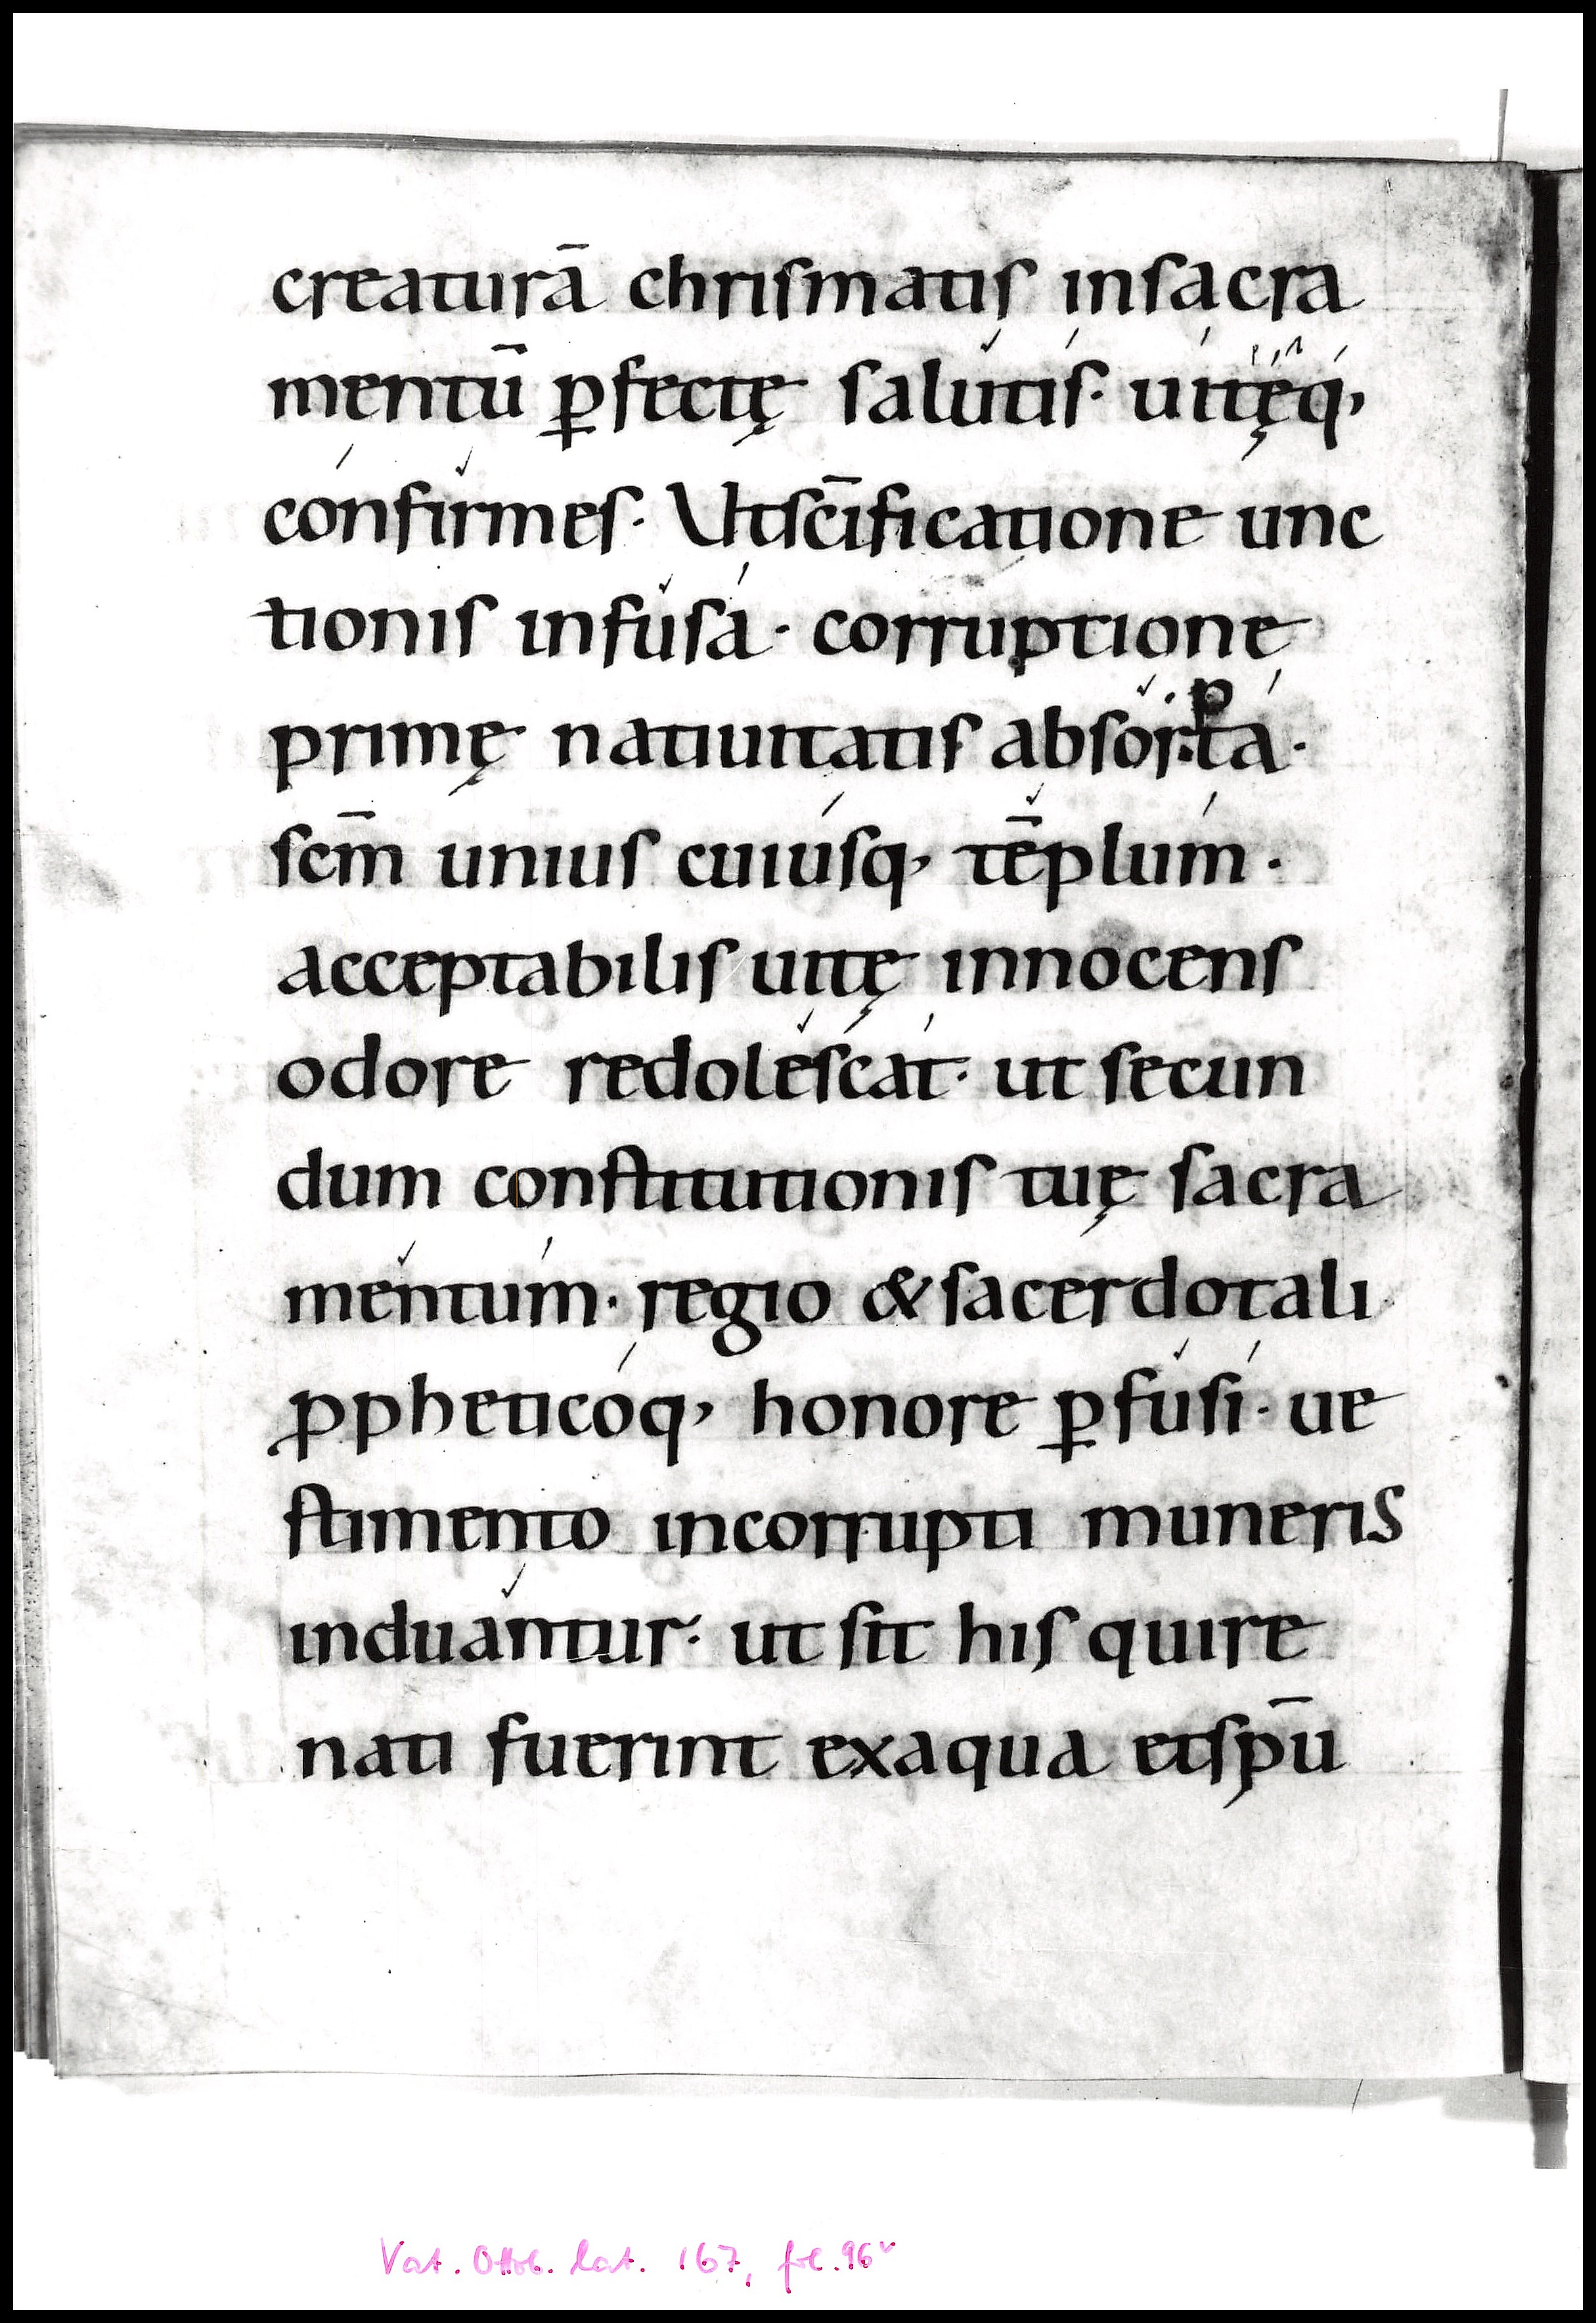 creaturā chrismatis insacra
mentū ꝑfectę salutis· uitęq,
confirmes· Utsc̄ificatione unc
tionis infusa· corruptione
primę natiuitatis absorpta·
scm̄ unius cuiusq, tēplum·
acceptabilis uitę innocens
odore redolescat· ut secun
dum constitutionis tuę sacra
mentum· regio & sacerdotali
ꝓpheticoq, honore ꝑfusi· ue
stimento incorrupti muneris
induantur· ut sit his quire
nati fuerint exaqua etsp̄u
Vat. Ottob. lat. 167, fol. 96v